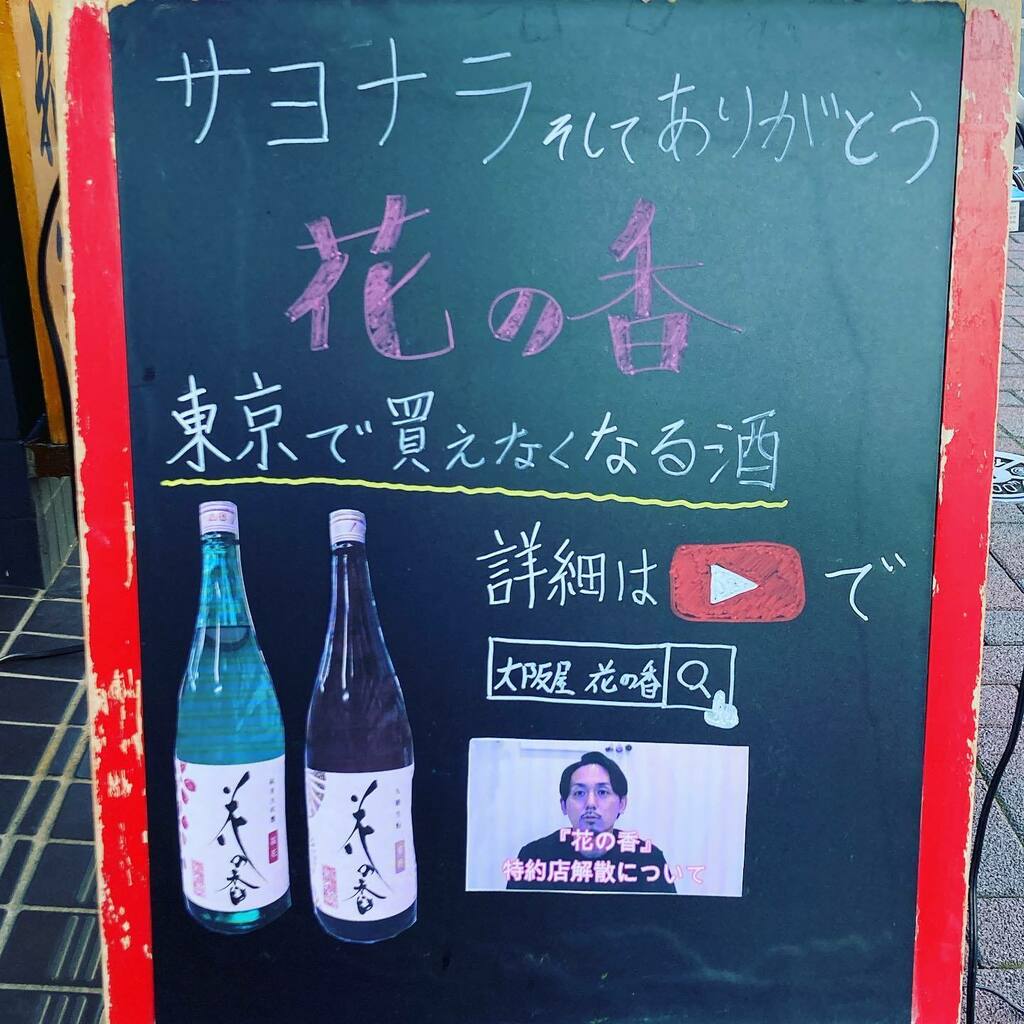 サヨナラそしてありがとう
花の香
東京で買えなくなる酒
詳細は
で
大阪屋 花の香
花の香
花の香
『花の香』
特約店解散について